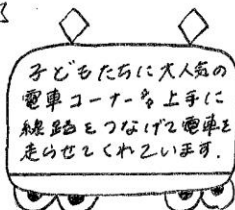 子どもたちに大人気の
電車コーナー。上手に
線路をつなげて電車を
走らせてくれています。